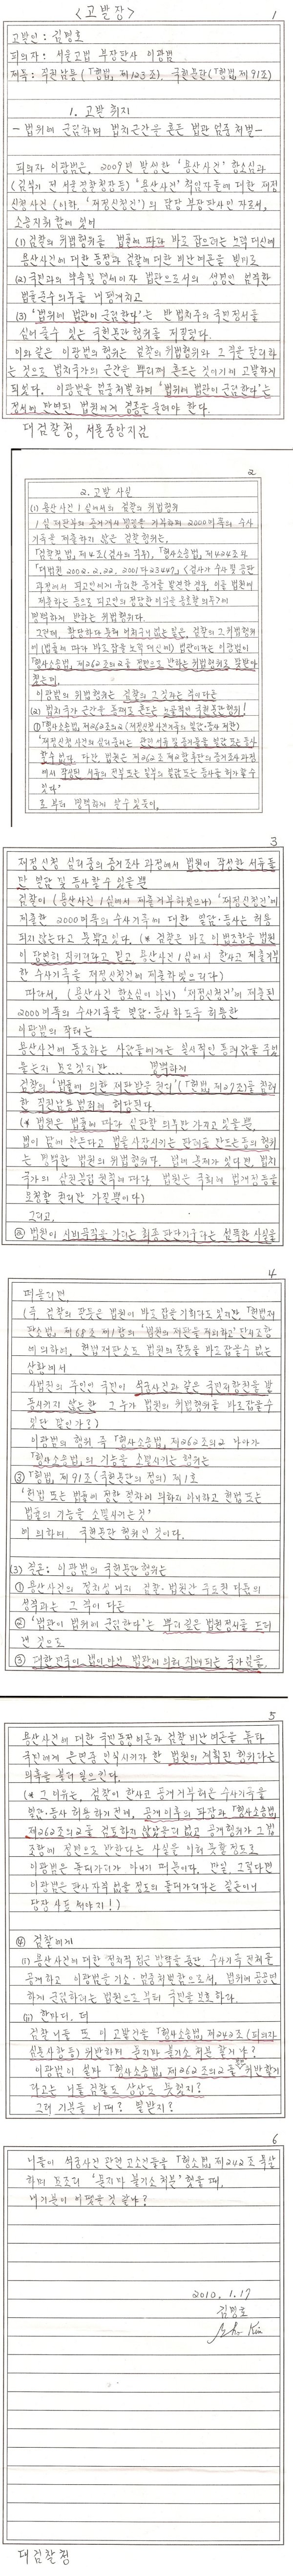 <고발장>
1
고발인 : 김명호
피의자 : 서울고법 부장판사 이광범
제목 : 직권남용 (「형법」 제123조), 국헌문란 (「형법」 제91조)
1. 고발 취지
- 법위에 군림하며 법치근간을 흔든 법관 엄중 처벌 -
피의자 이광범은, 2009년 발생한 '용산사건' 항소심과
(김석기 전 서울경찰청장 등) '용산사건' 책임자들에 대한 재정
신청사건 (이하, '재정신청건')의 담당 부장판사인 자로서,
소송지휘함에 있어
(1) 검찰의 위법행위를 법률에 따라 바로 잡으려는 노력 대신에
용산사건에 대한 동정과 검찰에 대한 비난여론을 빌미로
(2) 국민과의 약속 및 명예이자 법관으로서의 생명인 엄격한
법률준수의무를 내팽개치고
(3) '법위에 법관이 군림한다'는 반법치주의 국민정서를
심어줄수 있는 국헌문란 행위를 저질렀다.
이와 같은 이광범의 행위는 검찰의 위법행위와 그 격을 달리하
는 것으로 법치국가의 근간을 뿌리째 흔드는 것이기에 고발하게
되었다. 이광범을 엄중처벌하여 '법위에 법관이 군림한다'는
정서에 만연된 법원에게 경종을 울려야 한다.
대검찰청, 서울중앙지검
2
2. 고발 사실
(1) 용산사건 1심에서의 검찰의 위법행위
1심 재판부의 증거개시 명령을 거부하며 2000여쪽의 수사
기록을 제출하지 않은 검찰 행위는,
「검찰청법」 제4조 (검사의 직무), 「형사소송법」 제424조 및
「대법원 2002. 2. 22. 2001다23447」 (검사가 수사 및 공판
과정에서 피고인에게 유리한 증거를 발견한 경우, 이를 법원에
제출하는 등으로 피고인의 정당한 이익을 옹호할 의무)에
명백하게 반하는 위법행위다.
그런데, 황당하다 못해 어처구니 없는 일은, 검찰의 그 위법행위
이 (법률에 따라 바로 잡을 노력 대신에) 법관이라는 이광범이
「형사소송법」 제262조의2를 정면으로 반하는 위법행위로 맞받아
쳤는데,
이광범의 위법행위는 검찰의 그것과는 격이 다른
(2) 법치국가 근간을 통째로 흔드는 노골적인 국헌문란행위!
① 「형사소송법」 제262조의2 (재정신청사건기록의 열람·등사 제한)
'재정신청사건의 심리중에는 관련 서류 및 증거물을 열람 또는 등사
할수 없다. 다만, 법원은 제262조 제2항 후단의 증거조사과정
에서 작성된 서류의 전부 또는 일부의 열람 또는 등사를 허가할 수
있다'
로 부터 명백하게 알수 있듯이,
3
재정신청 심리중의 증거조사 과정에서 법원이 작성한 서류들
만 열람 및 등사할수 있을 뿐
검찰이 (용산사건 1심에서 제출거부하였으나) '재정신청건'에
제출한 2000여쪽의 수사기록에 대한 열람·등사는 허용
되지 않는다고 못박고 있다. (* 검찰은 바로 이 법조항을 법원
이 당연히 지키리라고 믿고 용산사건 1심에서 항사코 제출거부
한 수사기록을 재정신청건에 제출하였으리라)
따라서, (용산사건 항소심이 아닌) '재정신청건'에 제출된
2000여쪽의 수사기록을 열람·등사하도록 허용한
이광범의 작태는
용산사건에 동조하는 사람들에게는 일시적인 통쾌감을 주었
을런지 모르겠지만.... 명백하게
검찰의 '법률에 의한 재판받을 권리' (「헌법」 제27조)를 침해
한 직권남용 범죄에 해당된다.
(* 법원은 법률에 따라 심판할 의무만 가지고 있을 뿐,
법이 맘에 안든다고 법을 사장시키는 판례를 만드는 등의 행위
는 명백한 법원의 위법행위다. 법에 문제가 있다면, 법치
국가의 삼권분립 원칙에 따라 법원은 국회에 법개정 등을
요청할 권리만 가질 뿐이다)
그리고,
② 법원이 시비곡직을 가리는 최종 판단기구라는 섬뜩한 사실을
4
떠올리면,
(즉 검찰의 잘못은 법원이 바로 잡을 기회라도 있지만, 「헌법재
판소법」 제68조 제1항의 '법원의 재판을 제외하고' 단서조항
에 의하여, 헌법재판소도 법원의 잘못을 바로잡을수 없는
상황에서
사법권의 주인인 국민이 석궁사건과 같은 국민저항권을 발
동시키지 않는한 그 누가 법원의 위법행위를 바로잡을수
있단 말인가?)
이광범의 행위 즉 「형사소송법」 제262조의2 나아가
「형사소송법」의 기능을 소멸시키는 행위는
③ 「형법」 제91조 (국헌문란의 정의) 제1호
'헌법 또는 법률에 정한 절차에 의하지 아니하고 헌법 또는
법률의 기능을 소멸시키는 것'
에 의하여 국헌문란 행위인 것이다.
(3) 결론 : 이광범의 국헌문란 행위는
① 용산사건의 정치성 내지 검찰·법원간 주도권 다툼의
성격과는 그 격이 다른
② '법관이 법위에 군림한다'는 뿌리 깊은 법원정서를 드러
낸 것으로
③ 대한민국이 법이 아닌 법관에 의해 지배되는 국가임을,
5
용산사건에 대한 국민동정여론과 검찰 비난여론을 틈타
국민에게 은연중 인식시키려 한 법원의 계획된 행위라는
의혹을 불러 일으킨다.
(* 그 이유는, 검찰이 항사코 공개거부하려는 수사기록을
열람·등사 허용하기 전에, 공개이후의 파장과 「형사소송법」
제262조의2를 검토하지 않았을리 없고 공개행위가 그 법
조항에 정면으로 반한다는 사실을 이해 못할 정도로
이광범은 돌대가리가 아니기 때문이다. 만일, 그렇다면
이광범은 판사자격 없을 정도의 돌대가리라는 말인이니
당장 사표 써야지!)
④ 검찰에게
(i) 용산사건에 대한 정치적 접근 방책을 줄만, 수사기록 전체를
공개하고 이광범을 기소·엄중처벌함으로써, 법위에 공공연
하게 군림하려는 법원으로 부터 국민을 보호하라.
(ii) 한마디, 더
검찰 너들 또 이 고발건을 「형사소송법」 제242조 (피의자
심문사항 등) 위반하며 묻지마 불기소 처분할거냐?
이광범이 설마 「형사소송법」 제262조의2를 위반할거
라고는 너들 검찰도 상상도 못했지?
그래 기분은 어때? 뭐같지?
6
너들이 석궁사건 관련 고소건들을 「형소법」 제242조 묵살
하며 모조리 '묻지마 불기소 처분'했을 때,
내 기분이 어땠을 것 같냐?
2010. 1. 17
김명호
대검찰청